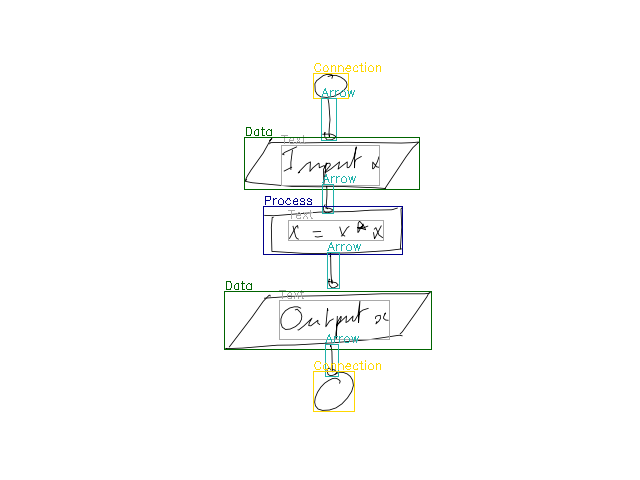 Connection
Arrow
Data
Text
Input x
Arrow
Process
Text
x = x * x
Arrow
Data
Text
Output x
Arrow
Connection